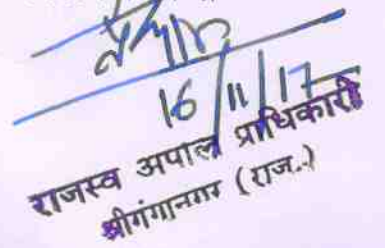 16/11/17
राजस्व अपील प्राधिकारी
श्रीगंगानगर (राज.)